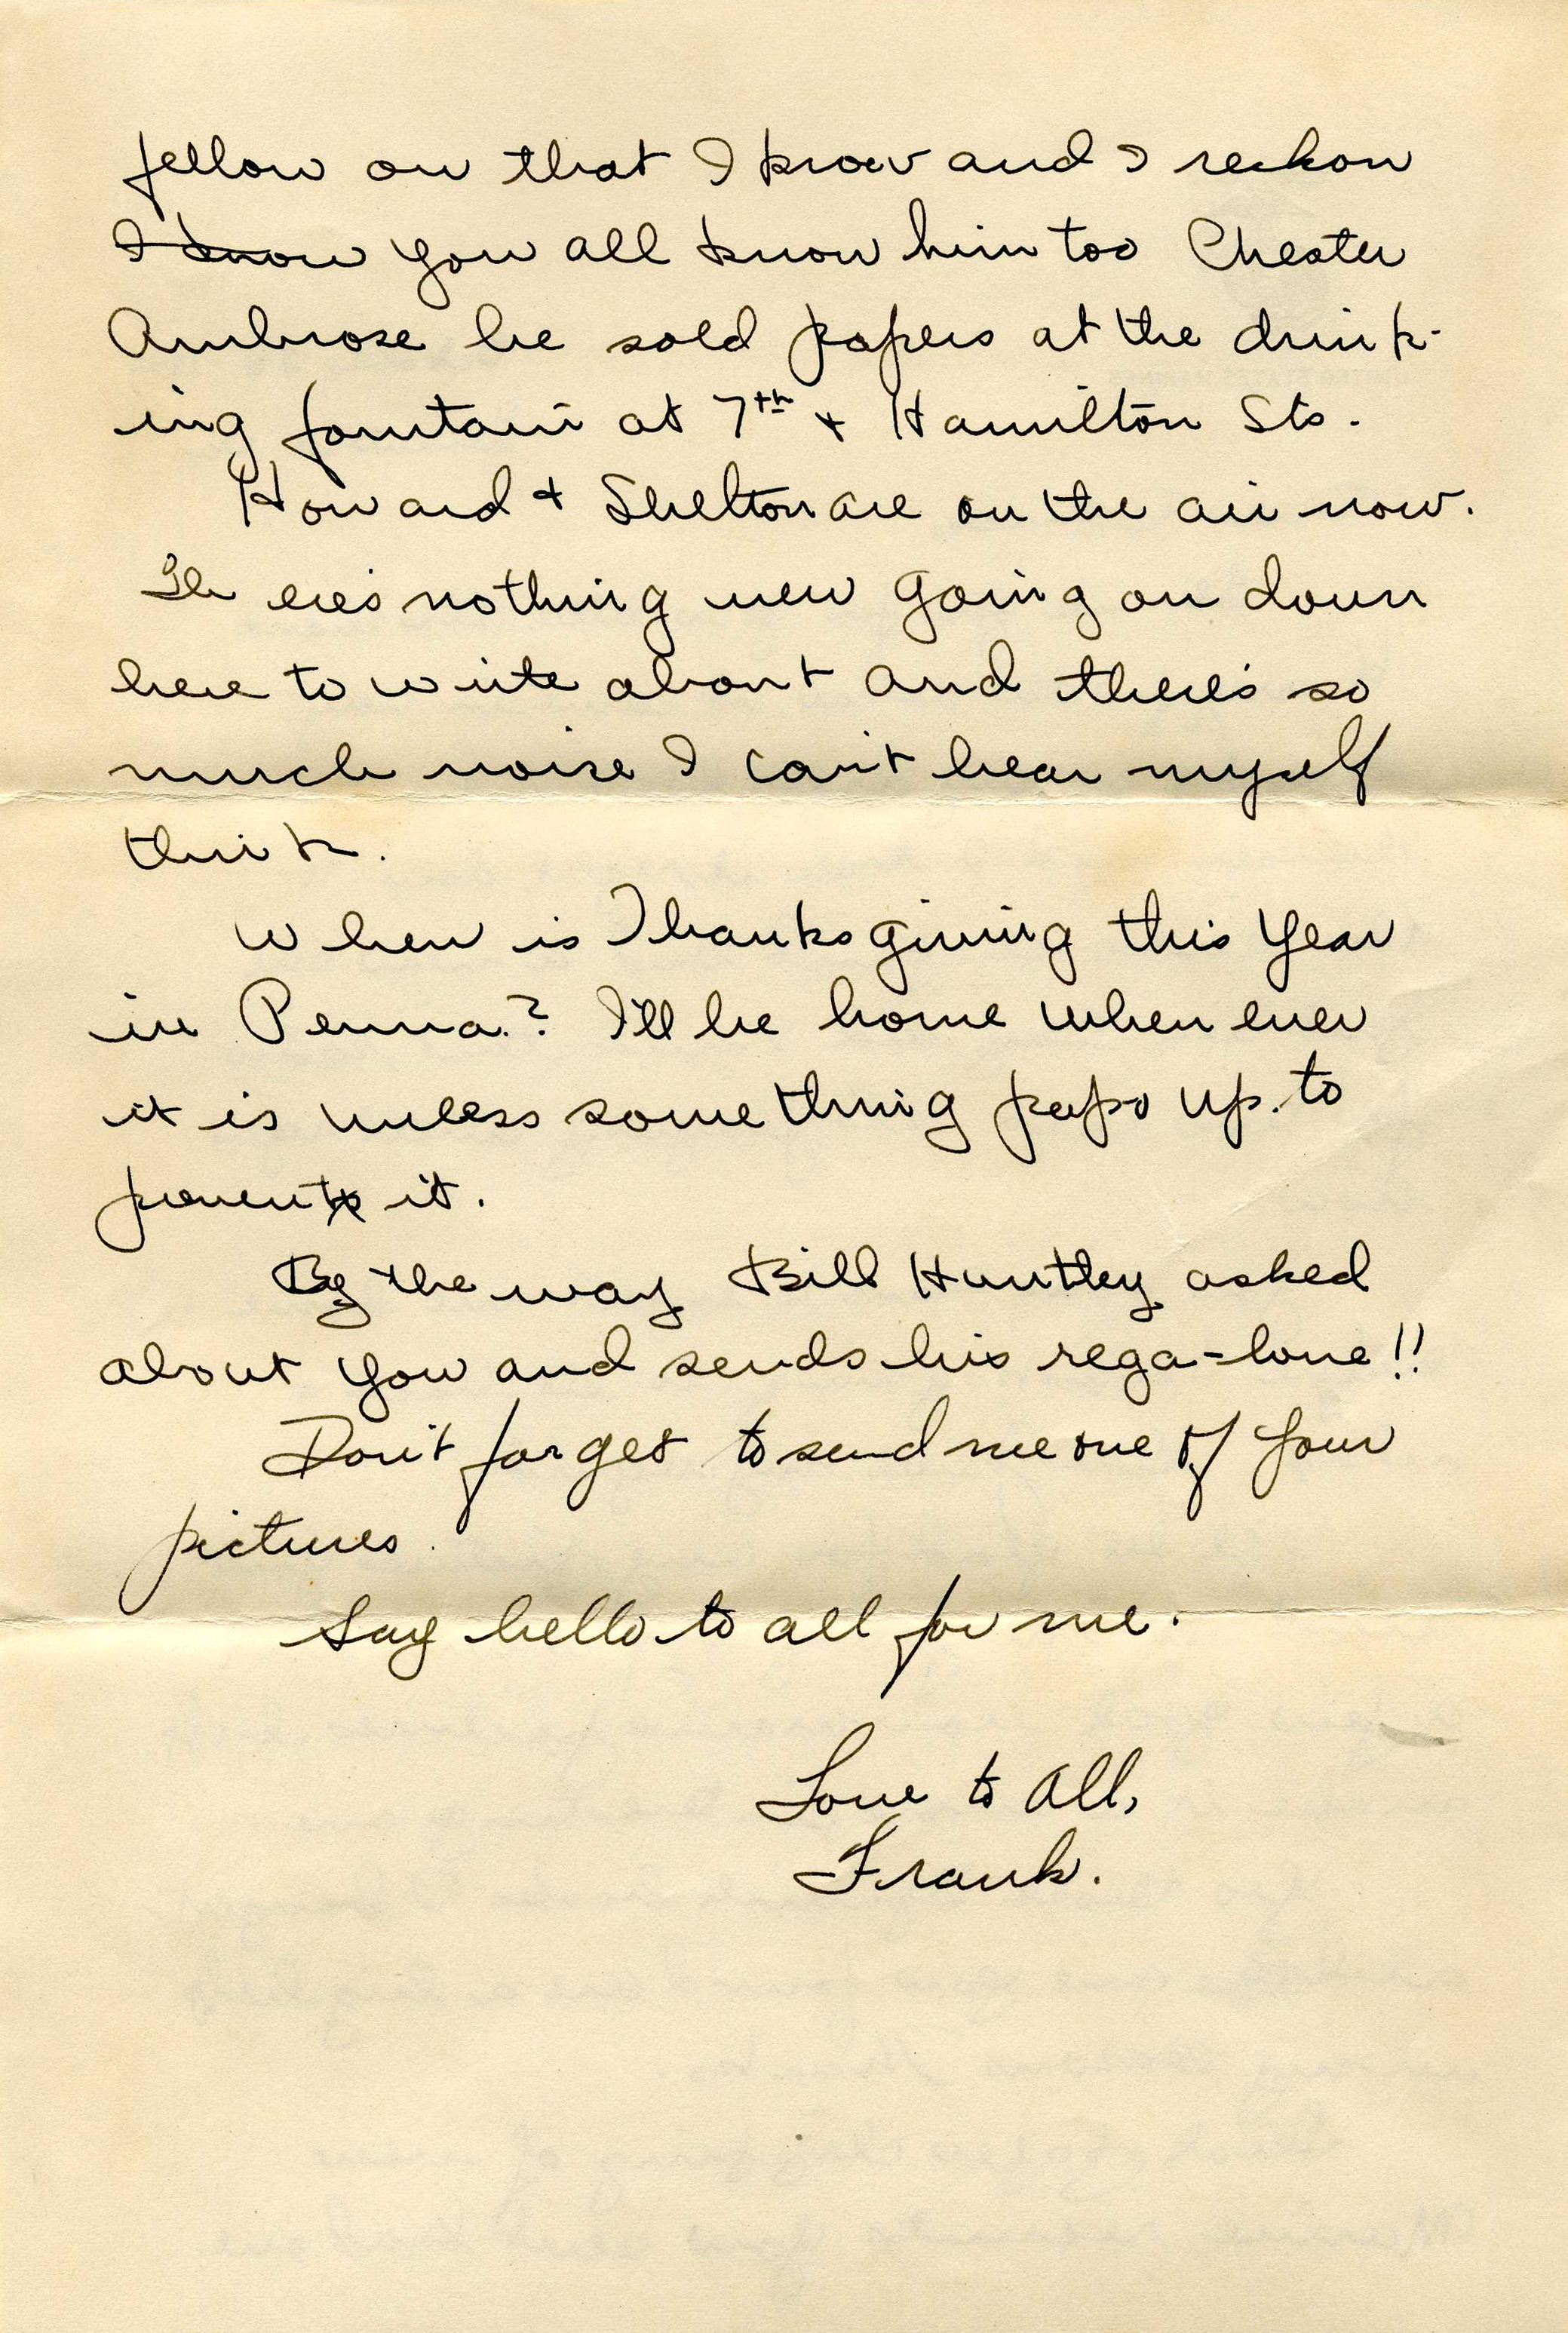 fellow on that I know and I reckon
I know you all know him too Chester
Ambrose he sold papers at the drink-
ing fountain at 7th + Hamilton Sts.
Howard + Shelton are on the air now.
There's nothing new going on down
here to write about and there's so
much noise I can't hear myself
think.
When is Thanksgiving this year
in Penna.? I'll be home when ever
it is unless something pops up to
prevent it.
By the way Bill Huntley asked
about you and sends his rega-lone!!
Don't forget to send me one of your
pictures.
Say hello to all for me.
Love to All,
Frank.